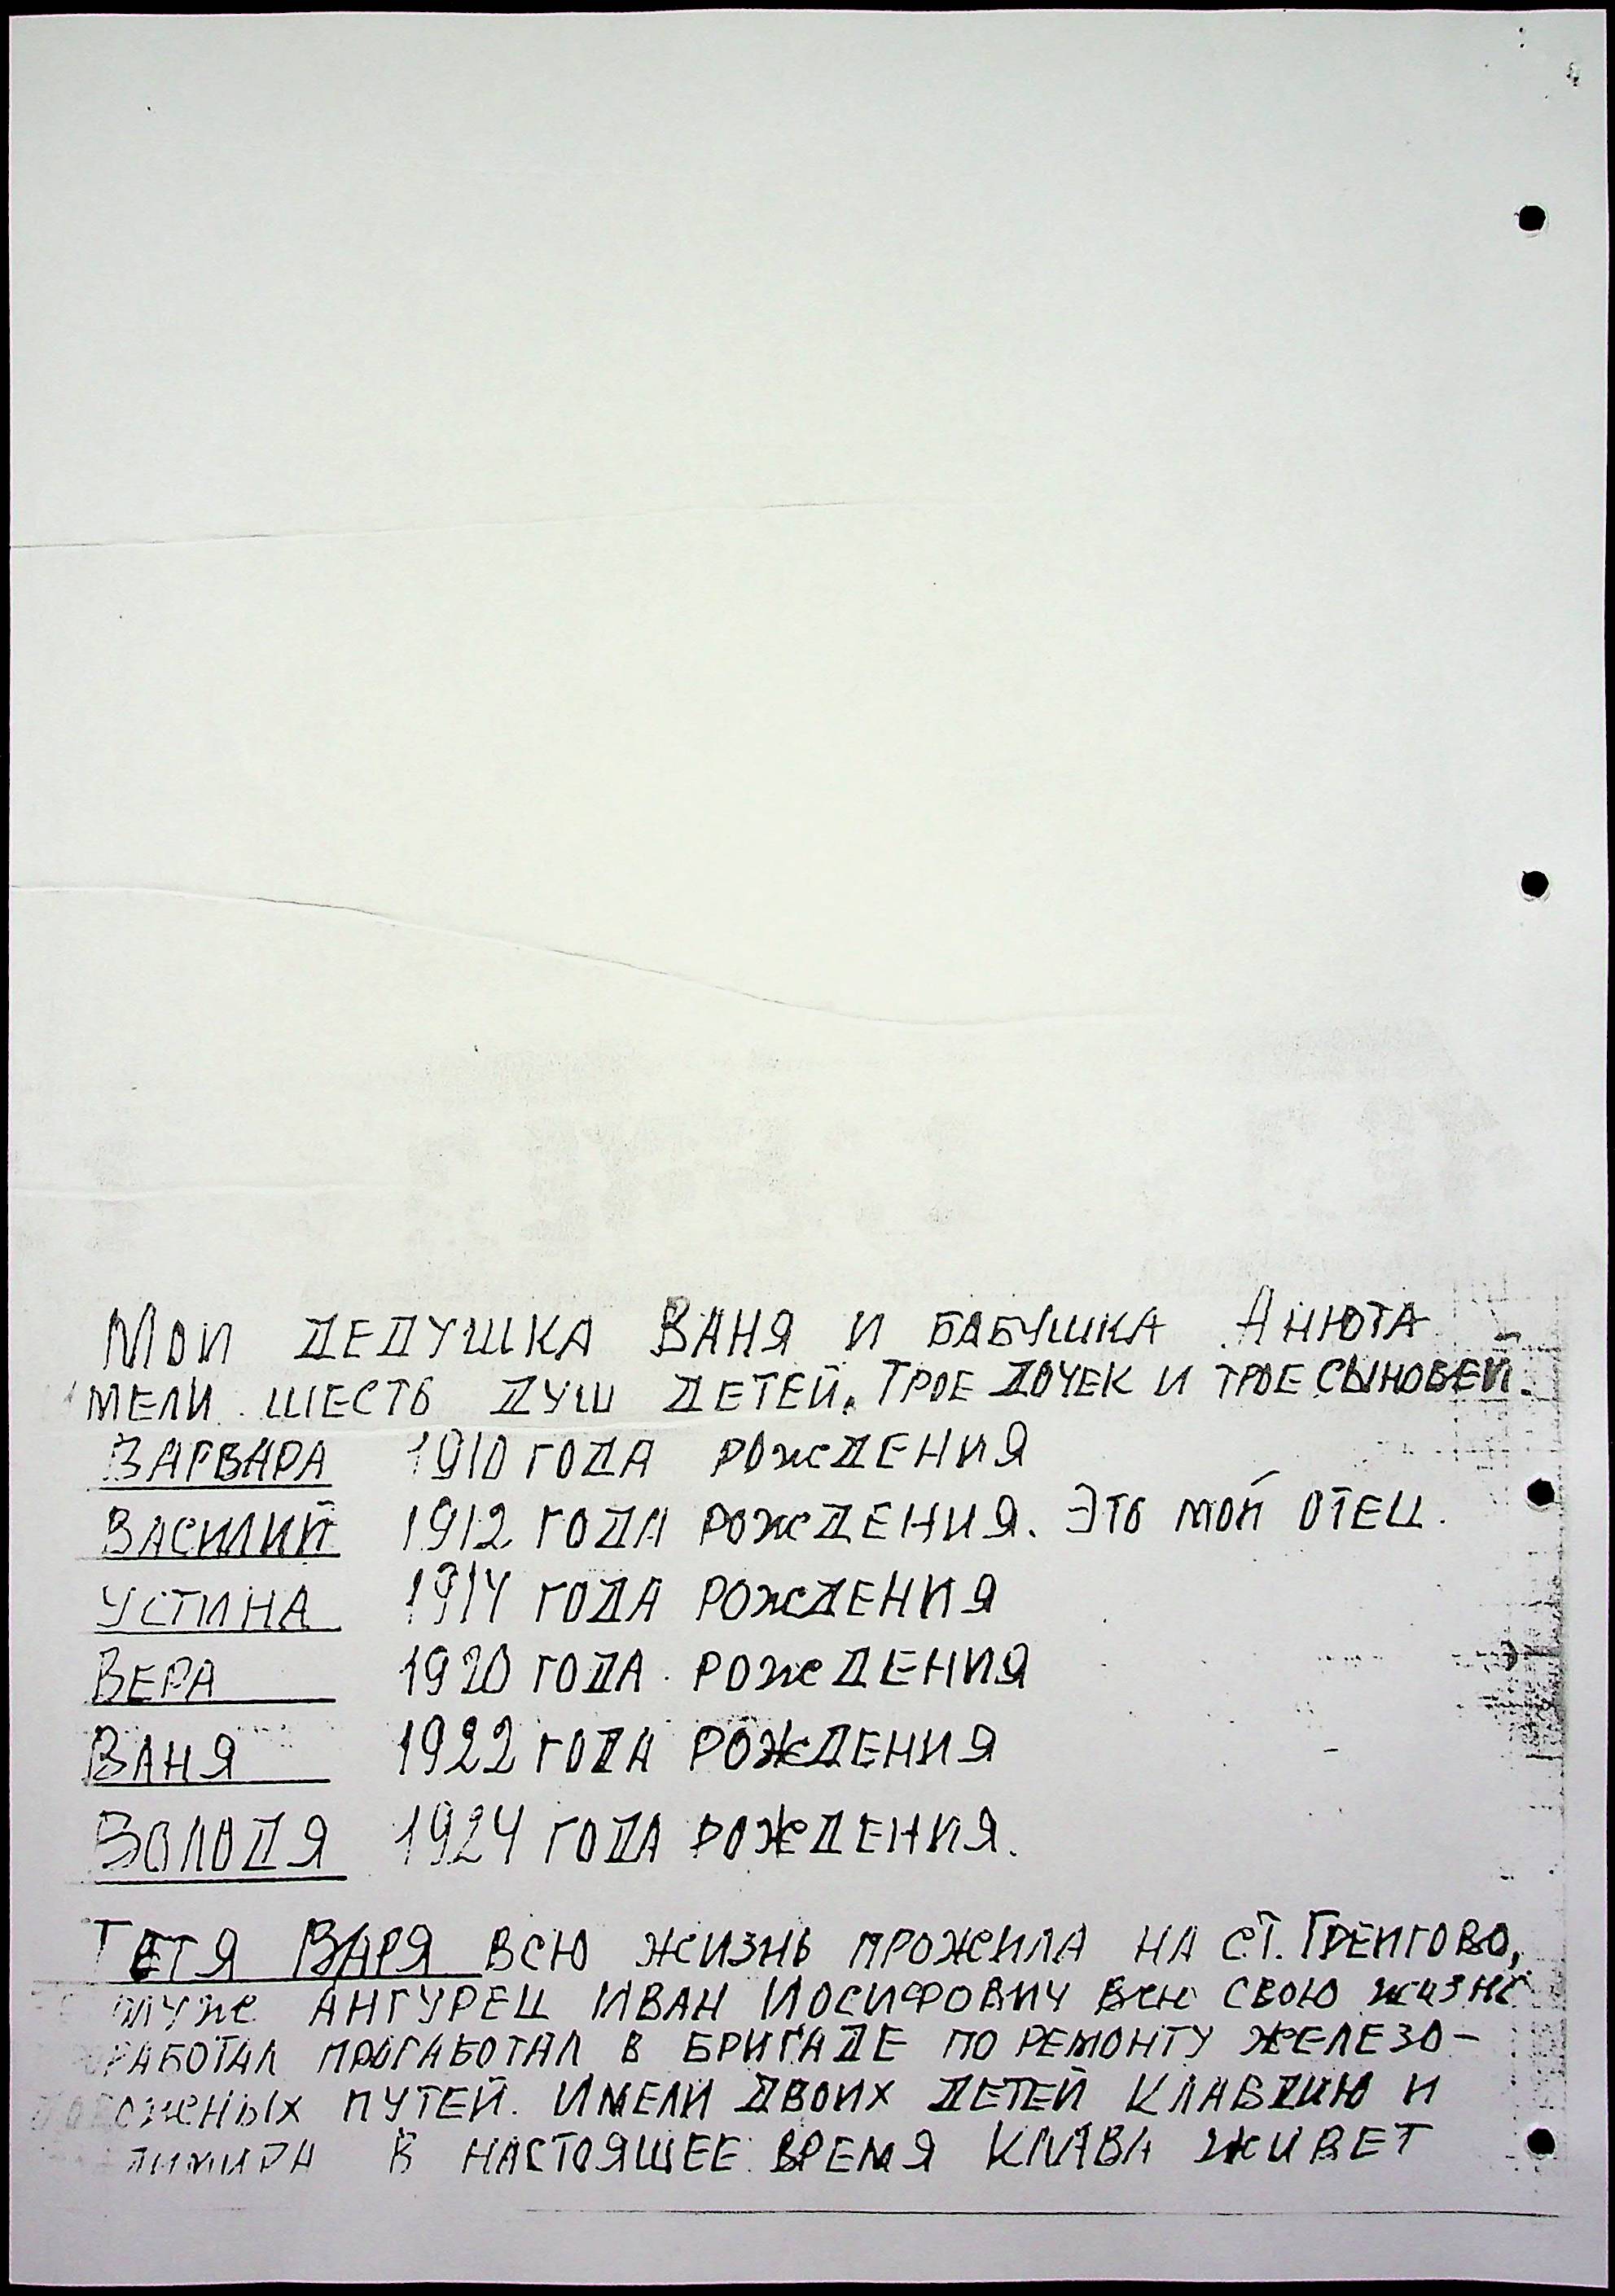 МОИ ДЕДУШКА ВАНЯ И БАБУШКА АНЮТА
МЕЛИ ШЕСТЬ ДУШ ДЕТЕЙ. ТРОЕ ДОЧЕК И ТРОЕ СЫНОВЕЙ.
ВАРВАРА 1910 ГОДА РОЖДЕНИЯ
ВАСИЛИЙ 1912 ГОДА РОЖДЕНИЯ. ЭТО МОЙ ОТЕЦ.
УСТИНА 1914 ГОДА РОЖДЕНИЯ
ВЕРА 1920 ГОДА РОЖДЕНИЯ
ВАНЯ 1922 ГОДА РОЖДЕНИЯ
ВОЛОДЯ 1924 ГОДА РОЖДЕНИЯ.
ТЕТЯ ВАРЯ ВСЮ ЖИЗНЬ ПРОЖИЛА НА СТ. ГРЕЙГОВО,
МУЖ АНГУРЕЦ ИВАН ИОСИФОВИЧ ВСЮ СВОЮ ЖИЗНЬ
РАБОТАЛ ПРОРАБОТАЛ В БРИГАДЕ ПО РЕМОНТУ ЖЕЛЕЗО-
ДОРОЖНЫХ ПУТЕЙ. ИМЕЛИ ДВОИХ ДЕТЕЙ КЛАВДИЮ И
В НАСТОЯЩЕЕ ВРЕМЯ КЛАВА ЖИВЕТ